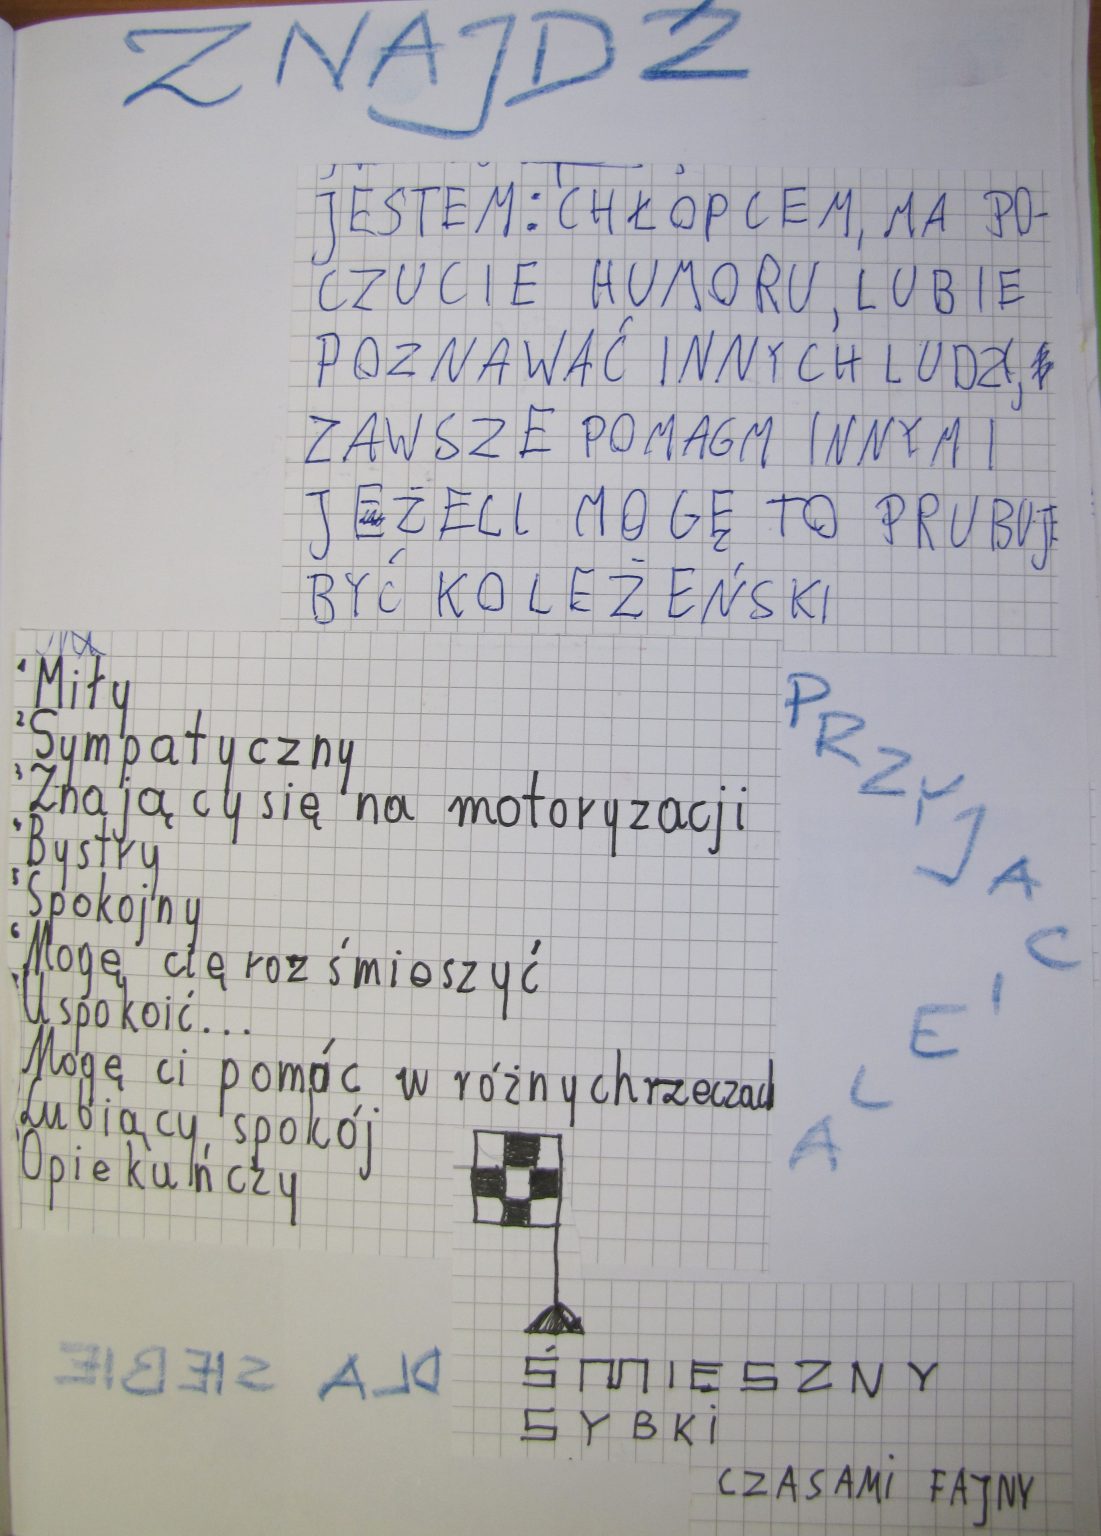 ZNAJDŹ
JESTEM: CHŁOPCEM, MA PO-
CZUCIE HUMORU, LUBIE
POZNAWAĆ INNYCH LUDZI,
ZAWSZE POMAGM INNYM I
JEŻELI MOGĘ TO PRUBUJE
BYĆ KOLEŻEŃSKI
1 Miły
2 Sympatyczny
3 Znający się na motoryzacji
4 Bystry
5 Spokojny
6 Mogę cię rozśmieszyć
Uspokoić...
Mogę ci pomóc w różnych rzeczach
Lubiący spokój
Opiekuńczy
PRZYJACIELA
DLA SIEBIE
ŚMIESZNY
SYBKI
CZASAMI FAJNY